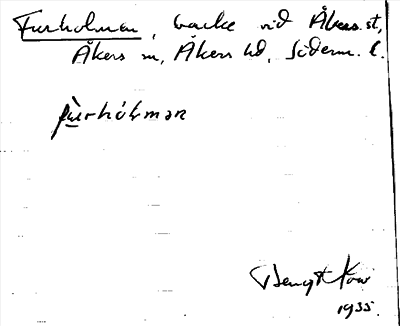 Furholman, backe vid Åkers st,
Åkers sn, Åkers hd, Söderm. l.
fùrhólman
Bengt
1935.